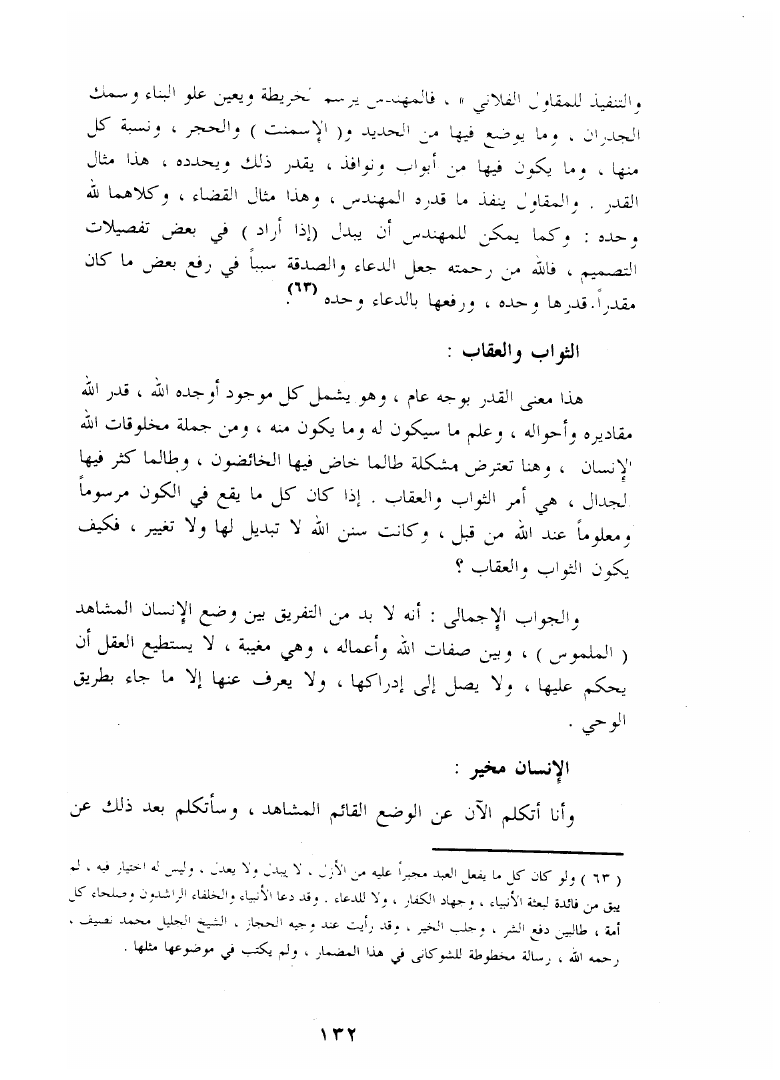 والتنفيذ للمقاول الفلاني » ، فالمهندس يرسم لخريطة ويعين علو البناء وسمك
الجدران ، وما يوضع فيها من الحديد و( الإسمنت ) والحجر ، ونسبة كل
منها ، وما يكون فيها من أبواب ونوافذ ، يقدر ذلك ويحدده ، هذا مثال
القدر . والمقاول ينفذ ما قدره المهندس ، وهذا مثال القضاء ، وكلاهما لله
وحده : وكما يمكن للمهندس أن يبدل (إذا أراد ) في بعض تفصيلات
التصميم ، فالله من رحمته جعل الدعاء والصدقة سبباً في رفع بعض ما كان
مقدراً. قدرها وحده ، ورفعها بالدعاء وحده (٦٣).
الثواب والعقاب :
هذا معنى القدر بوجه عام ، وهو يشمل كل موجود أوجده الله ، قدر الله
مقاديره وأحواله ، وعلم ما سيكون له وما يكون منه ، ومن جملة مخلوقات الله
الإنسان ، وهنا تعترض مشكلة طالما خاض فيها الخائضون ، وطالما كثر فيها
لجدال ، هي أمر الثواب والعقاب . إذا كان كل ما يقع في الكون مرسوماً
ومعلوماً عند الله من قبل ، وكانت سنن الله لا تبديل لها ولا تغيير ، فكيف
يكون الثواب والعقاب ؟
والجواب الإجمالى : أنه لا بد من التفريق بين وضع الإنسان المشاهد
( الملموس ) ، وبين صفات الله وأعماله ، وهي مغيبة ، لا يستطيع العقل أن
يحكم عليها ، ولا يصل إلى إدراكها ، ولا يعرف عنها إلا ما جاء بطريق
الوحي .
الإنسان مخير :
وأنا أتكلم الآن عن الوضع القائم المشاهد ، وسأتكلم بعد ذلك عن
( ٦٣ ) ولو كان كل ما يفعل العبد مجبراً عليه من الأزل ، لا يبدل ولا يعدل ، وليس له اختيار فيه ، لم
يبق من فائدة لبعثة الأنبياء ، وجهاد الكفار ، ولا للدعاء . وقد دعا الأنبياء والخلفاء الراشدون وصلحاء كل
أمة ، طالبين دفع الشر ، وجلب الخير ، وقد رأيت عند وجيه الحجاز ، الشيخ الجليل محمد نصيف ،
رحمه الله ، رسالة مخطوطة للشوكانى في هذا المضمار ، ولم يكتب في موضوعها مثلها .
١٣٢